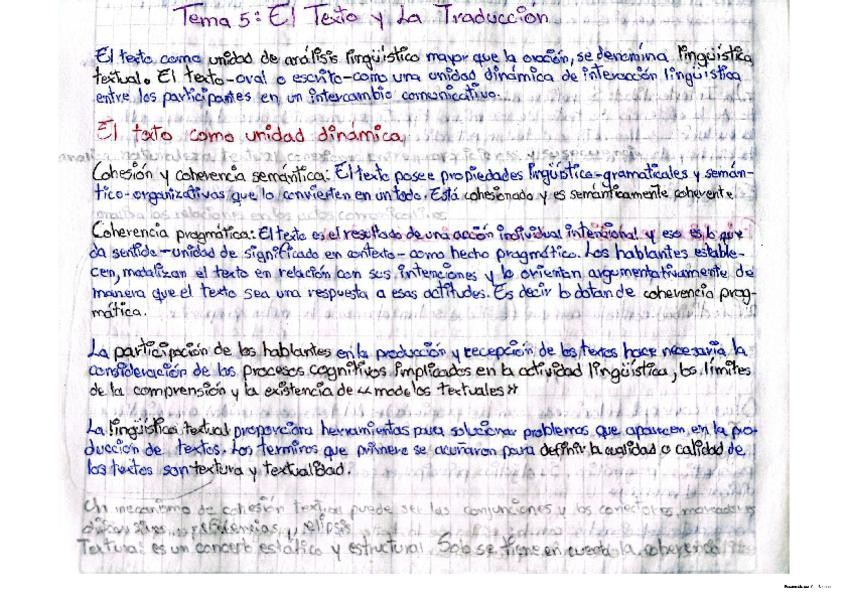 Tema 5: El Texto y La Traducción
El texto como unidad de análisis lingüístico mayor que la oración, se denomina lingüística
textual. El texto-oral o escrito-como una unidad dinámica de interacción lingüística
entre los participantes en un intercambio comunicativo.
El texto como unidad dinámica
Cohesión y coherencia semántica: El texto posee propiedades lingüístico-gramaticales y semán-
tico-organizativas que lo convierten en un todo. Está cohesionado y es semánticamente coherente.
Coherencia pragmática: El texto es el resultado de una acción individual intencional y eso es lo que
da sentido -unidad de significado en contexto- como hecho pragmático. Los hablantes estable-
cen, modalizan el texto en relación con sus intenciones y lo orientan argumentativamente de
manera que el texto sea una respuesta a esas actitudes. Es decir lo dotan de coherencia prag-
mática.
La participación de los hablantes en la producción y recepción de los textos hace necesaria la
consideración de los procesos cognitivos implicados en la actividad lingüística, los límites
de la comprensión y la existencia de «modelos textuales»
La lingüística textual proporciona herramientas para solucionar problemas que aparecen en la pro-
ducción de textos. Los terminos que primero se acuñaron para definir la cualidad o calidad de
los textos son textura y textualidad.
Un mecanismo de cohesión textual puede ser las conjunciones y los conectores, marcadores
discursivos, referencias y elipsis
Textura: es un concert estático y estructural. Solo se tiene en cuenta la coherencia